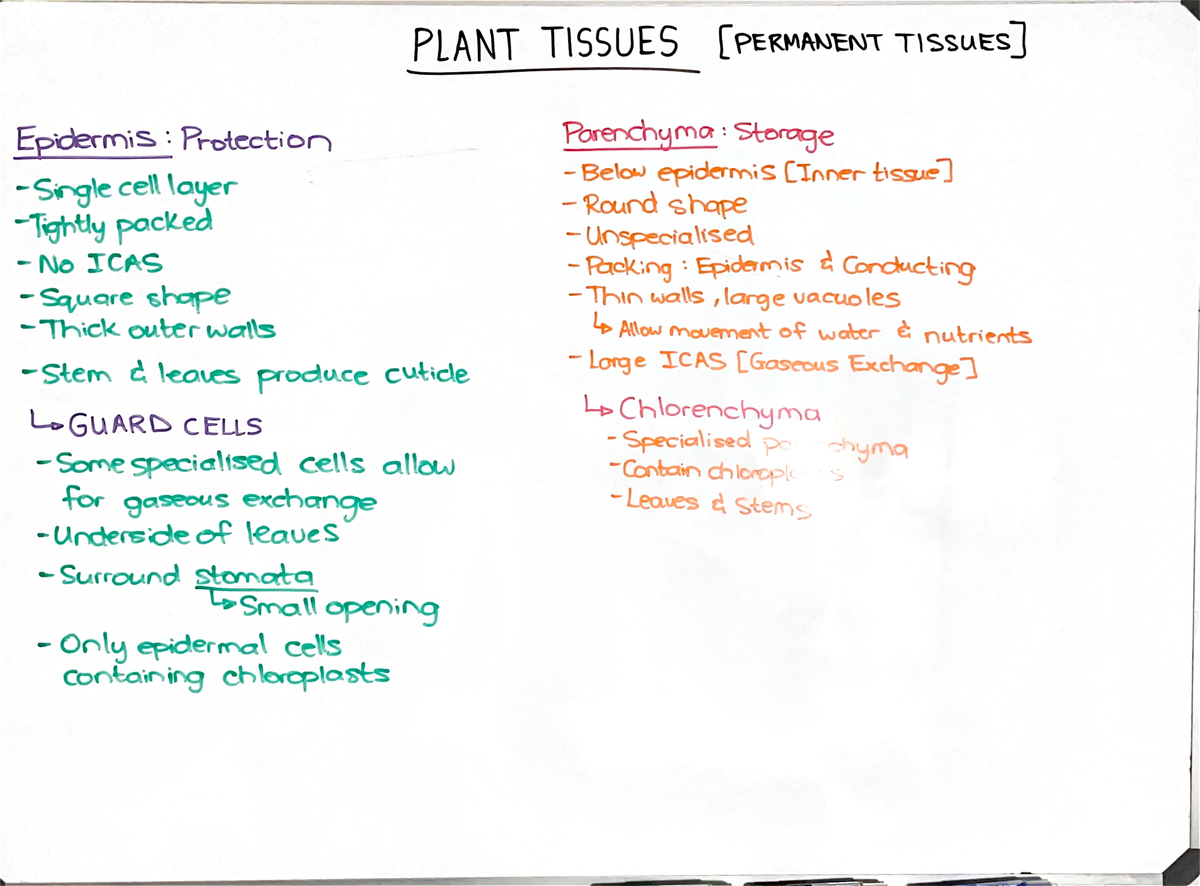 PLANT TISSUES [PERMANENT TISSUES]
Epidermis : Protection
- Single cell layer
- Tightly packed
- No ICAS
- Square shape
- Thick outer walls
- Stem & leaves produce cuticle
↳ GUARD CELLS
- Some specialised cells allow
for gaseous exchange
- Underside of leaves
- Surround stomata
↳ Small opening
- Only epidermal cells
containing chloroplasts
Parenchyma : Storage
- Below epidermis [Inner tissue]
- Round shape
- Unspecialised
- Packing : Epidermis & Conducting
- Thin walls, large vacuoles
↳ Allow movement of water & nutrients
- Large ICAS [Gaseous Exchange]
↳ Chlorenchyma
- Specialised
- Contain
- Leaves & Stems